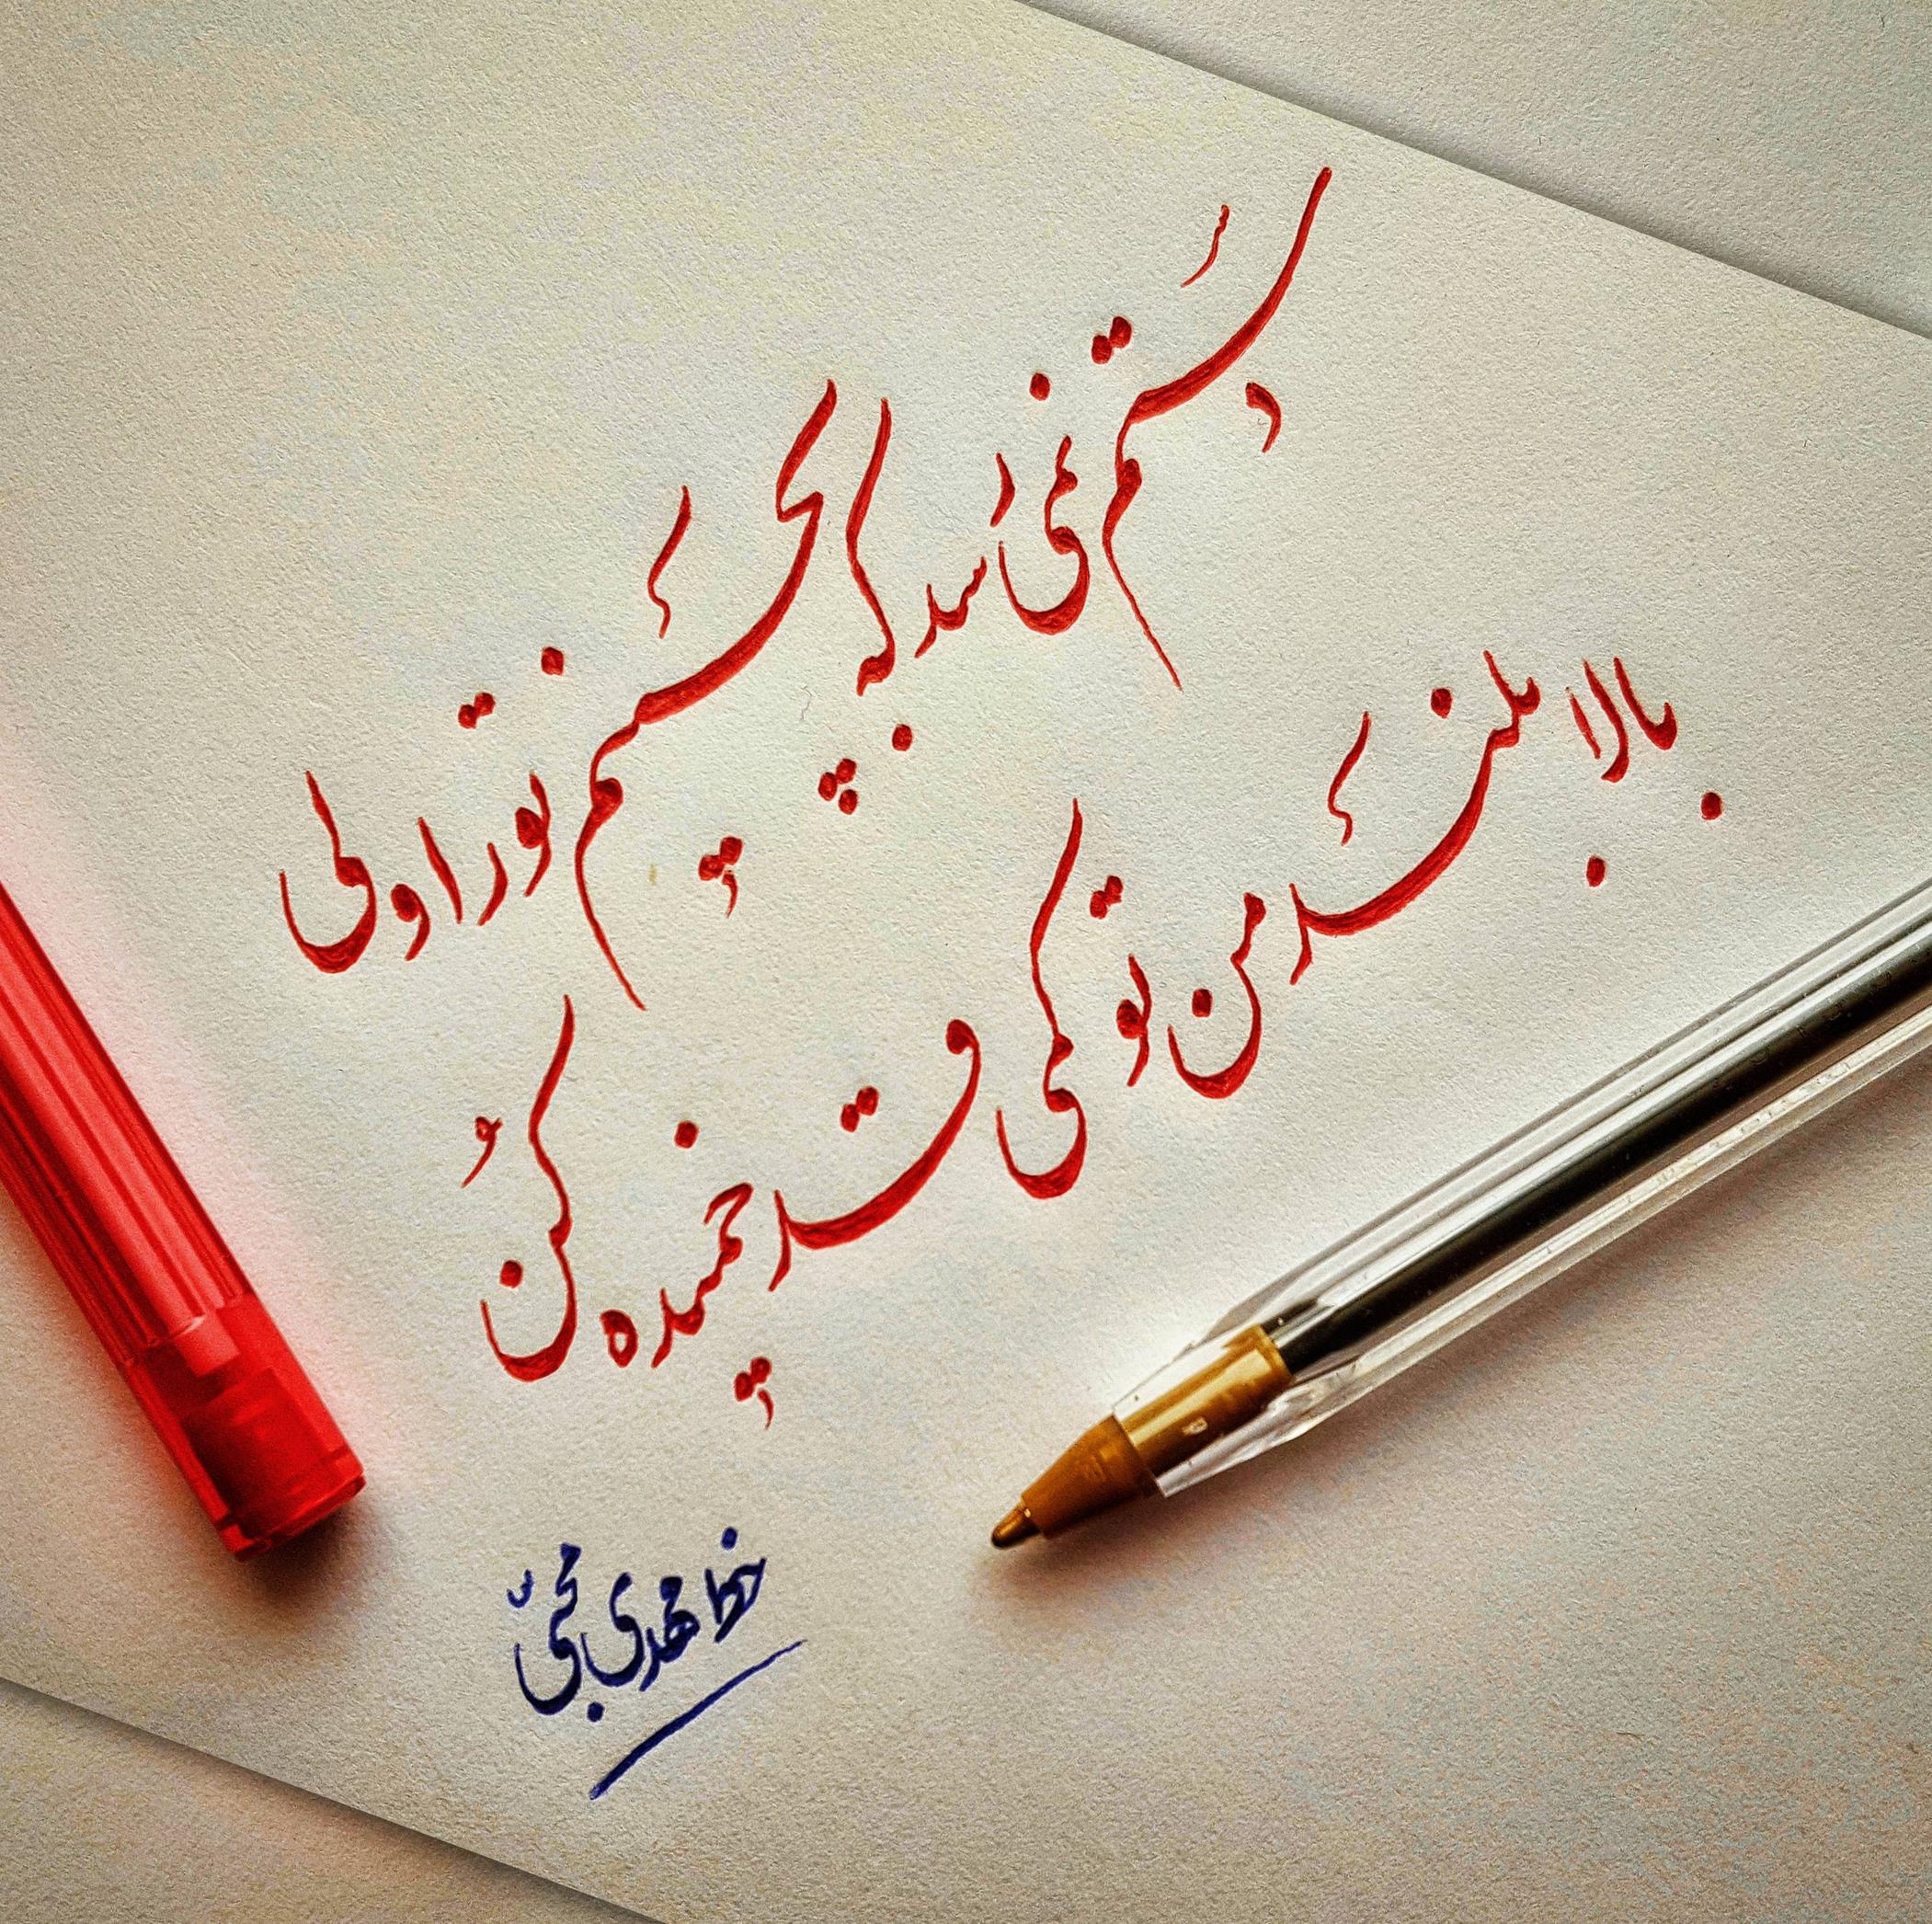 دستم نمی رسد که بچینم تو را ولی
بالا بلند من تو کمی قد خمیده کُن
خط مهدی محبّی